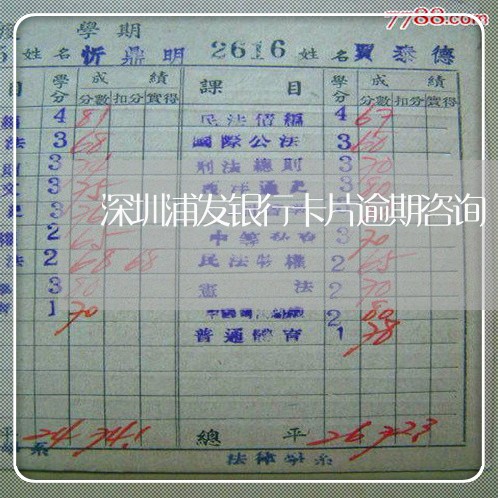 7788.com
學期
姓名 忻鼎明 2616 姓名 賈泰德
目 學分 成績 課目 學分 成績
分數 扣分 實得 分數 扣分 實得
4 81 民法債編 4 67
法 3 68 國際公法 3 60
3 刑法總則 3 70
3 75 西洋通史 3
深圳浦发银行卡片逾期咨询
2 65 3 70
法 2 68 68 民法物權 2 65
3 80 憲法 2 70
1 70 2 80
普通體育 1 78
平 24 74.1 總平 26 72.3
系 法律學系